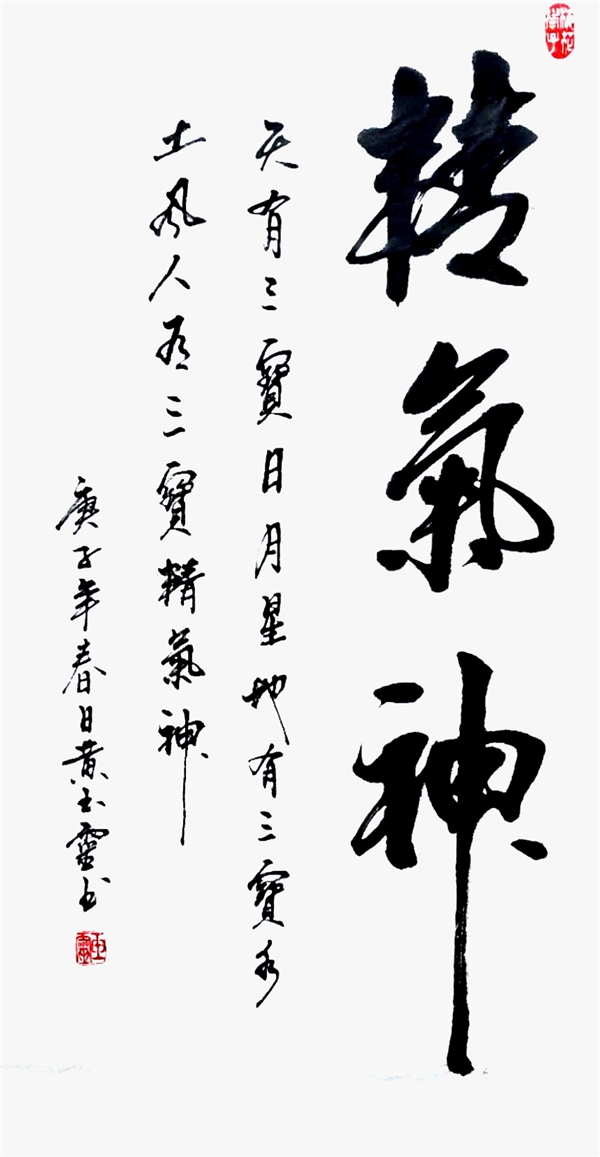 精氣神
天有三寶日月星地有三寶水
土風人有三寶精氣神
庚子年春日黃玉靈书
玉靈